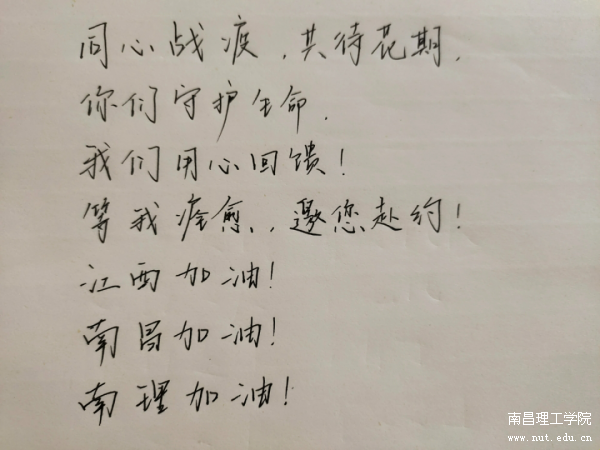 同心战疫，共待花期，
你们守护生命，
我们用心回馈！
等我痊愈，，邀您赴约！
江西加油！
南昌加油！
南理加油！
南昌理工学院
www.nut.edu.cn